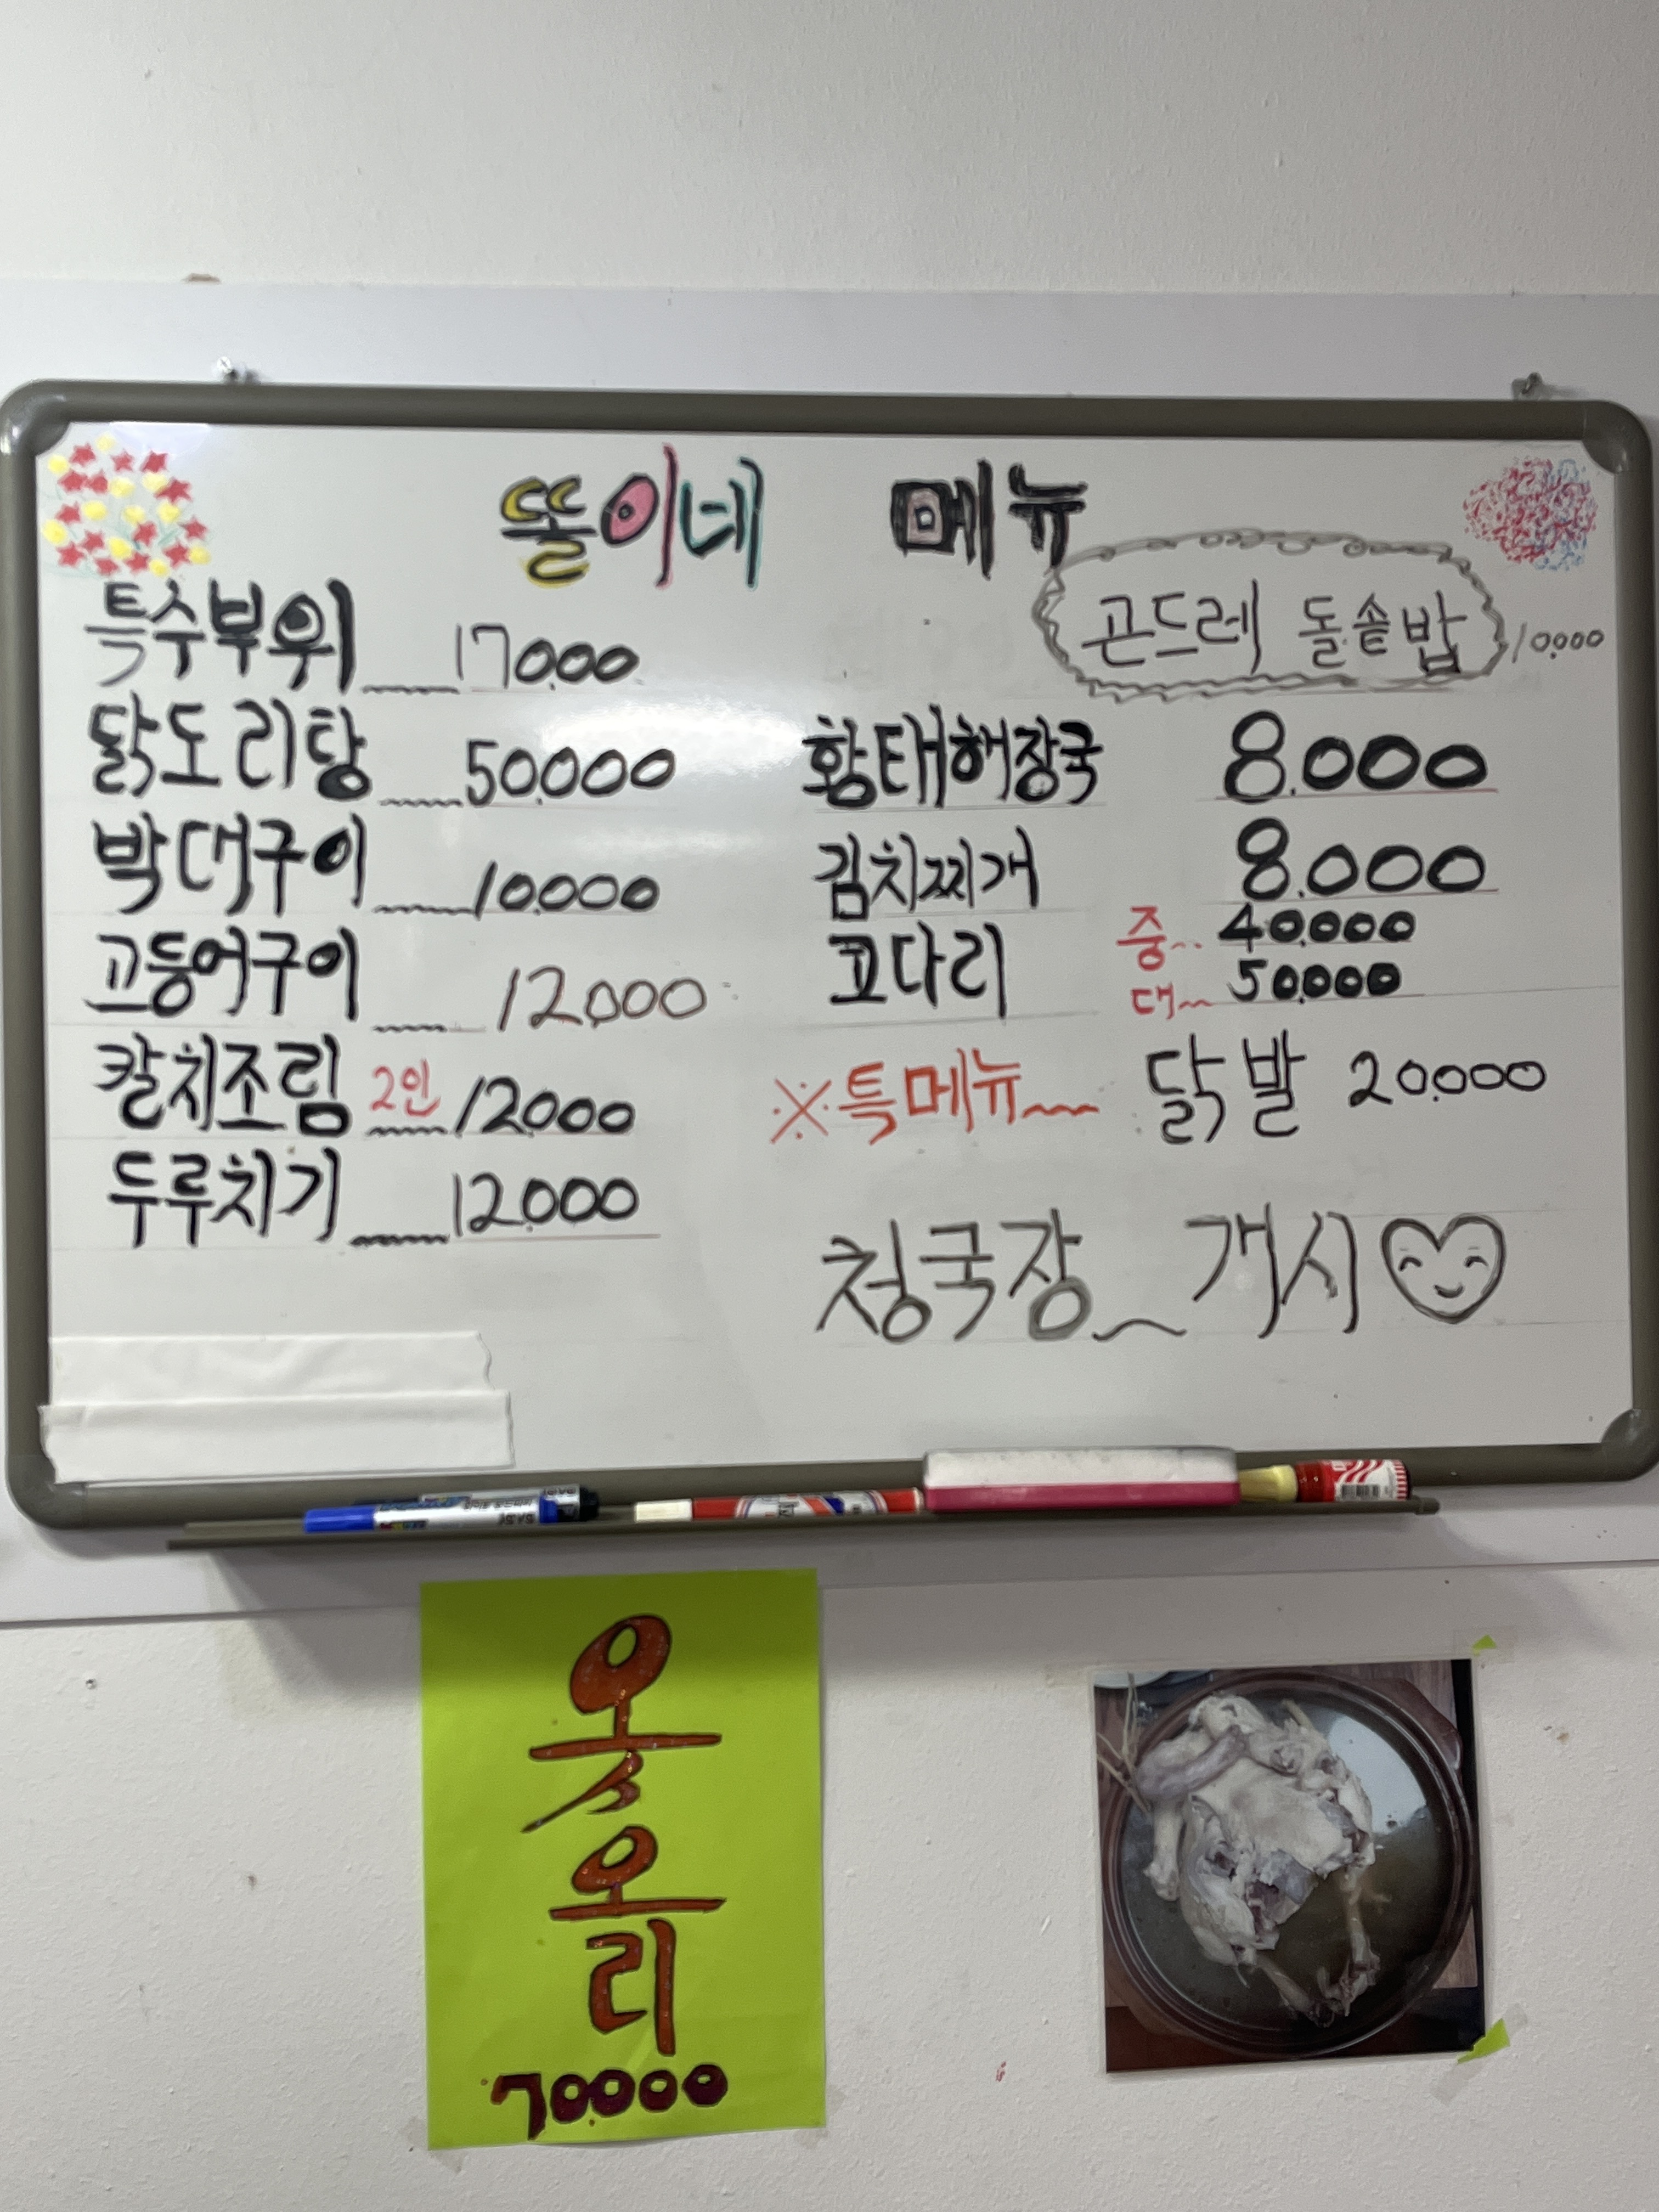 똘이네 메뉴
특수부위 17.000
닭도리탕 50.000
박대구이 10.000
고등어구이 12.000
칼치조림 2인 12.000
두루치기 12.000
곤드레 돌솥밥 10.000
황태해장국 8.000
김치찌개 8.000
코다리 중.. 40.000
대~ 50.000
※특메뉴~~ 닭발 20.000
청국장~개시♡
옻
오
리
70.000